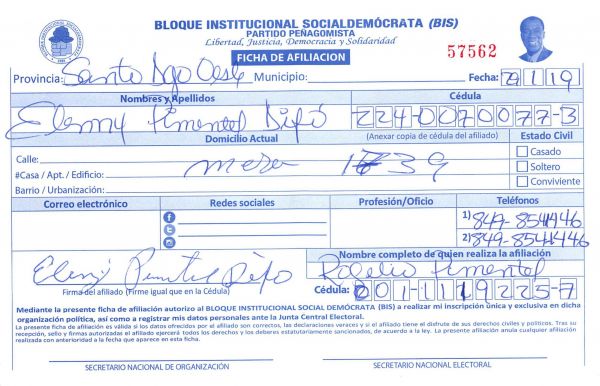 BLOQUE INSTITUCIONAL SOCIALDEMÓCRATA (BIS)
PARTIDO PEÑAGOMISTA
Libertad, Justicia, Democracia y Solidaridad
FICHA DE AFILIACION
57562
Provincia: Santo Dgo Oeste Municipio: Fecha: 29/1/19
Nombres y Apellidos Cédula
Elenny Pimentel 224-0070077-3
Domicilio Actual (Anexar copia de cédula del afiliado) Estado Civil
Calle: Casado
#Casa / Apt. / Edificio: mesa 1739 Soltero
Barrio / Urbanización: Conviviente
Correo electrónico Redes sociales Profesión/Oficio Teléfonos
1) 849-8541446
2) 849-8541446
Nombre completo de quien realiza la afiliación
Rogelio Pimentel
Firma del afiliado (Firme igual que en la Cédula) Cédula: 001-1119225-7
Mediante la presente ficha de afiliación autorizo al BLOQUE INSTITUCIONAL SOCIAL DEMÓCRATA (BIS) a realizar mi inscripción única y exclusiva en dicha
organización política, así como a registrar mis datos personales ante la Junta Central Electoral.
La presente ficha de afiliación es válida si los datos ofrecidos por el afiliado son correctos, las declaraciones veraces y si el afiliado tiene el disfrute de sus derechos civiles y políticos. Tras su
recepción, sello y firmas autorizadas el afiliado ejercerá todos los derechos y los deberes estatutariamente sancionados, de acuerdo a la ley. La presente afiliación anula cualquier afiliación
realizada con anterioridad a la fecha que aparece en esta ficha.
SECRETARIO NACIONAL DE ORGANIZACIÓN SECRETARIO NACIONAL ELECTORAL